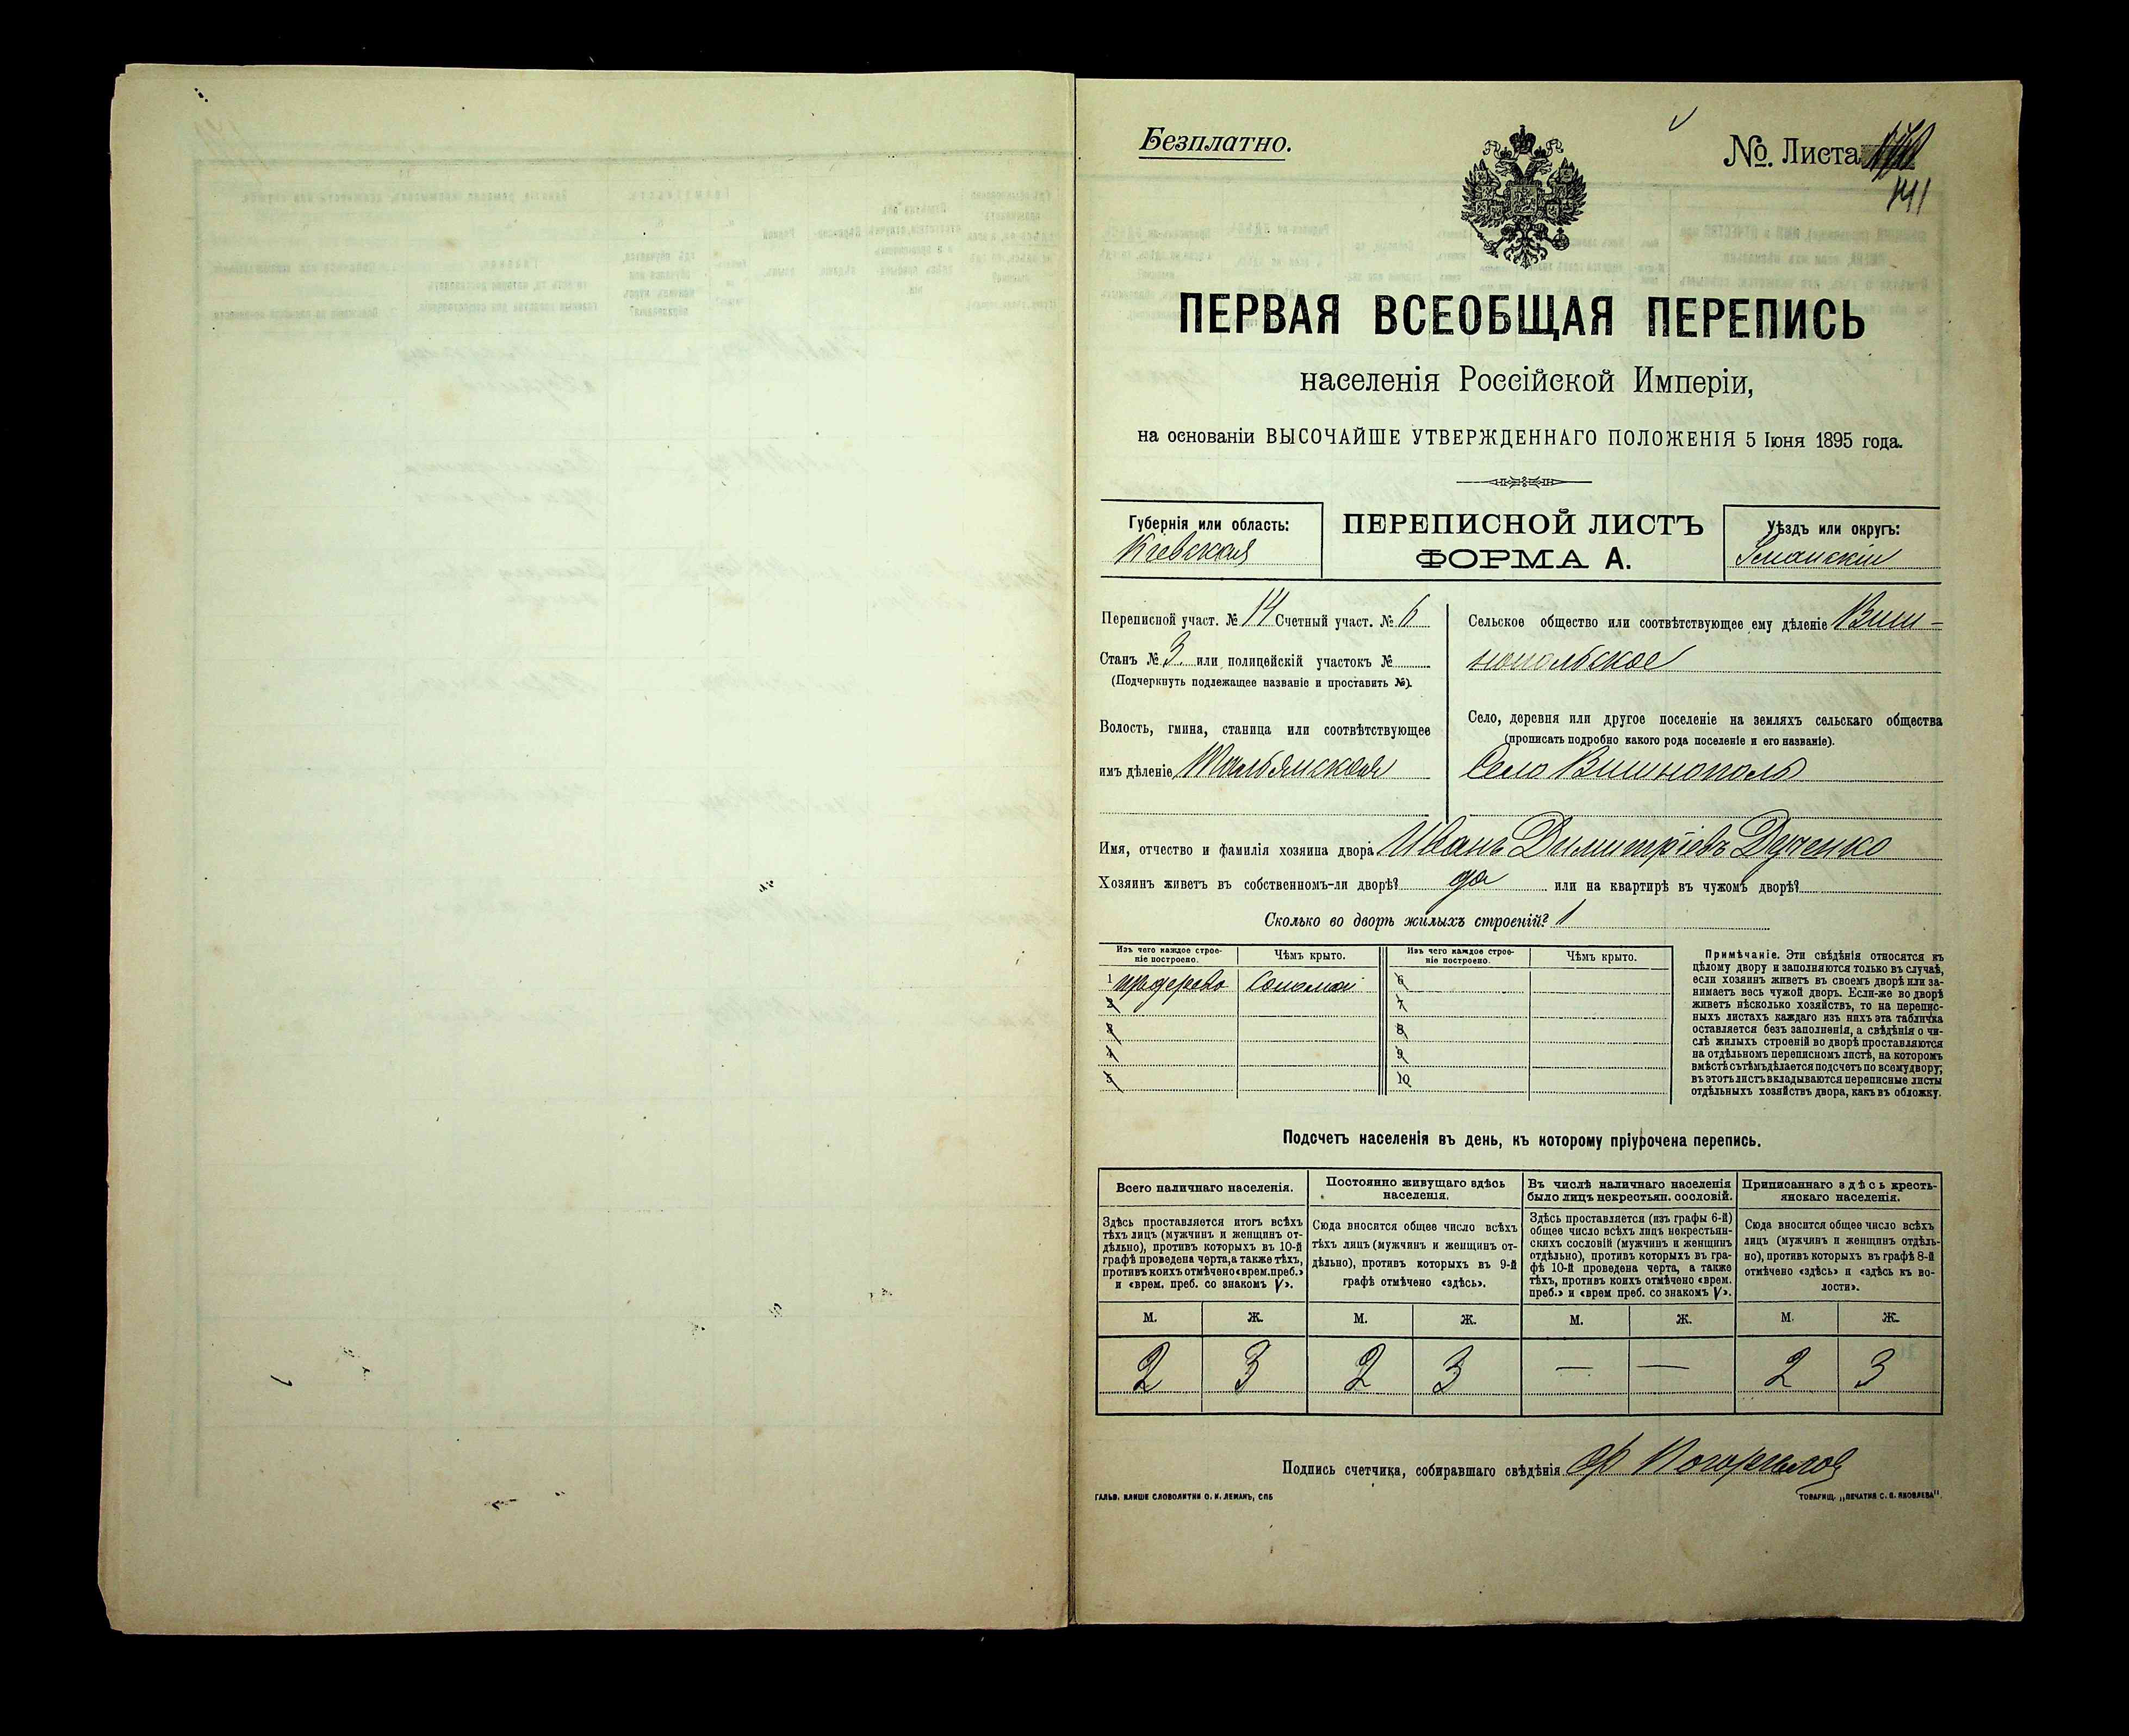 Безплатно.
№. Листа
141
ПЕРВАЯ ВСЕОБЩАЯ ПЕРЕПИСЬ
населенія Россійской Имперіи,
на основаніи ВЫСОЧАЙШЕ УТВЕРЖДЕННАГО ПОЛОЖЕНІЯ 5 Іюня 1895 года.
Губернія или область:
Кіевская
ПЕРЕПИСНОЙ ЛИСТЪ
ФОРМА А.
Уѣздъ или округъ:
Уманскій
Переписной участ. № 14 Счетный участ. № 6
Станъ № 3 или полицейскій участокъ №
(Подчеркнуть подлежащее названіе и проставить №).
Волость, гмина, станица или соотвѣтствующее
имъ дѣленіе
Сельское общество или соотвѣтствующее ему дѣленіе Виш-
нопольское
Село, деревня или другое поселеніе на земляхъ сельскаго общества
(прописать подробно какого рода поселеніе и его названіе).
Село Вишнополь
Имя, отчество и фамилія хозяина двора Иванъ Димитріевъ Дученко
Хозяинъ живетъ въ собственномъ-ли дворѣ? да или на квартирѣ въ чужомъ дворѣ?
Сколько во дворѣ жилыхъ строеній? 1
Изъ чего каждое строе-
ніе построено.
Чѣмъ крыто.
Изъ чего каждое строе-
ніе построено.
Чѣмъ крыто.
1 Соломой 6
2 7
3 8
4 9
5 10
Примѣчаніе. Эти свѣдѣнія относятся къ
цѣлому двору и заполняются только въ случаѣ,
если хозяинъ живетъ въ своемъ дворѣ или за-
нимаетъ весь чужой дворъ. Если-же во дворѣ
живетъ нѣсколько хозяйствъ, то на перепис-
ныхъ листахъ каждаго изъ нихъ эта табличка
оставляется безъ заполненія, а свѣдѣнія о чи-
слѣ жилыхъ строеній во дворѣ проставляются
на отдѣльномъ переписномъ листѣ, на которомъ
вмѣстѣ съ тѣмъ дѣлается подсчетъ по всему двору;
въ этотъ листъ вкладываются переписные листы
отдѣльныхъ хозяйствъ двора, какъ въ обложку.
Подсчетъ населенія въ день, къ которому пріурочена перепись.
Всего наличнаго населенія.
Здѣсь проставляется итогъ всѣхъ
тѣхъ лицъ (мужчинъ и женщинъ от-
дѣльно), противъ которыхъ въ 10-й
графѣ проведена черта, а также тѣхъ,
противъ коихъ отмѣчено «врем. преб.»
и «врем. преб. со знакомъ V».
Постоянно живущаго здѣсь
населенія.
Сюда вносится общее число всѣхъ
тѣхъ лицъ (мужчинъ и женщинъ от-
дѣльно), противъ которыхъ въ 9-й
графѣ отмѣчено «здѣсь».
Въ числѣ наличнаго населенія
было лицъ некрестьян. сословій.
Здѣсь проставляется (изъ графы 6-й)
общее число всѣхъ лицъ некрестьян-
скихъ сословій (мужчинъ и женщинъ
отдѣльно), противъ которыхъ въ гра-
фѣ 10-й проведена черта, а также
тѣхъ, противъ коихъ отмѣчено «врем.
преб.» и «врем преб. со знакомъ V».
Приписаннаго здѣсь кресть-
янскаго населенія.
Сюда вносится общее число всѣхъ
лицъ (мужчинъ и женщинъ отдѣль-
но), противъ которыхъ въ графѣ 8-й
отмѣчено «здѣсь» и «здѣсь къ во-
лости».
М. Ж. М. Ж. М. Ж. М. Ж.
2 3 2 3 — — 2 3
Подпись счетчика, собиравшаго свѣдѣнія
ГАЛЬВ. КЛИШЕ СЛОВОЛИТНИ О. И. ЛЕМАНЪ, СПБ
ТОВАРИЩ. „ПЕЧАТНЯ С. П. ЯКОВЛЕВА“.